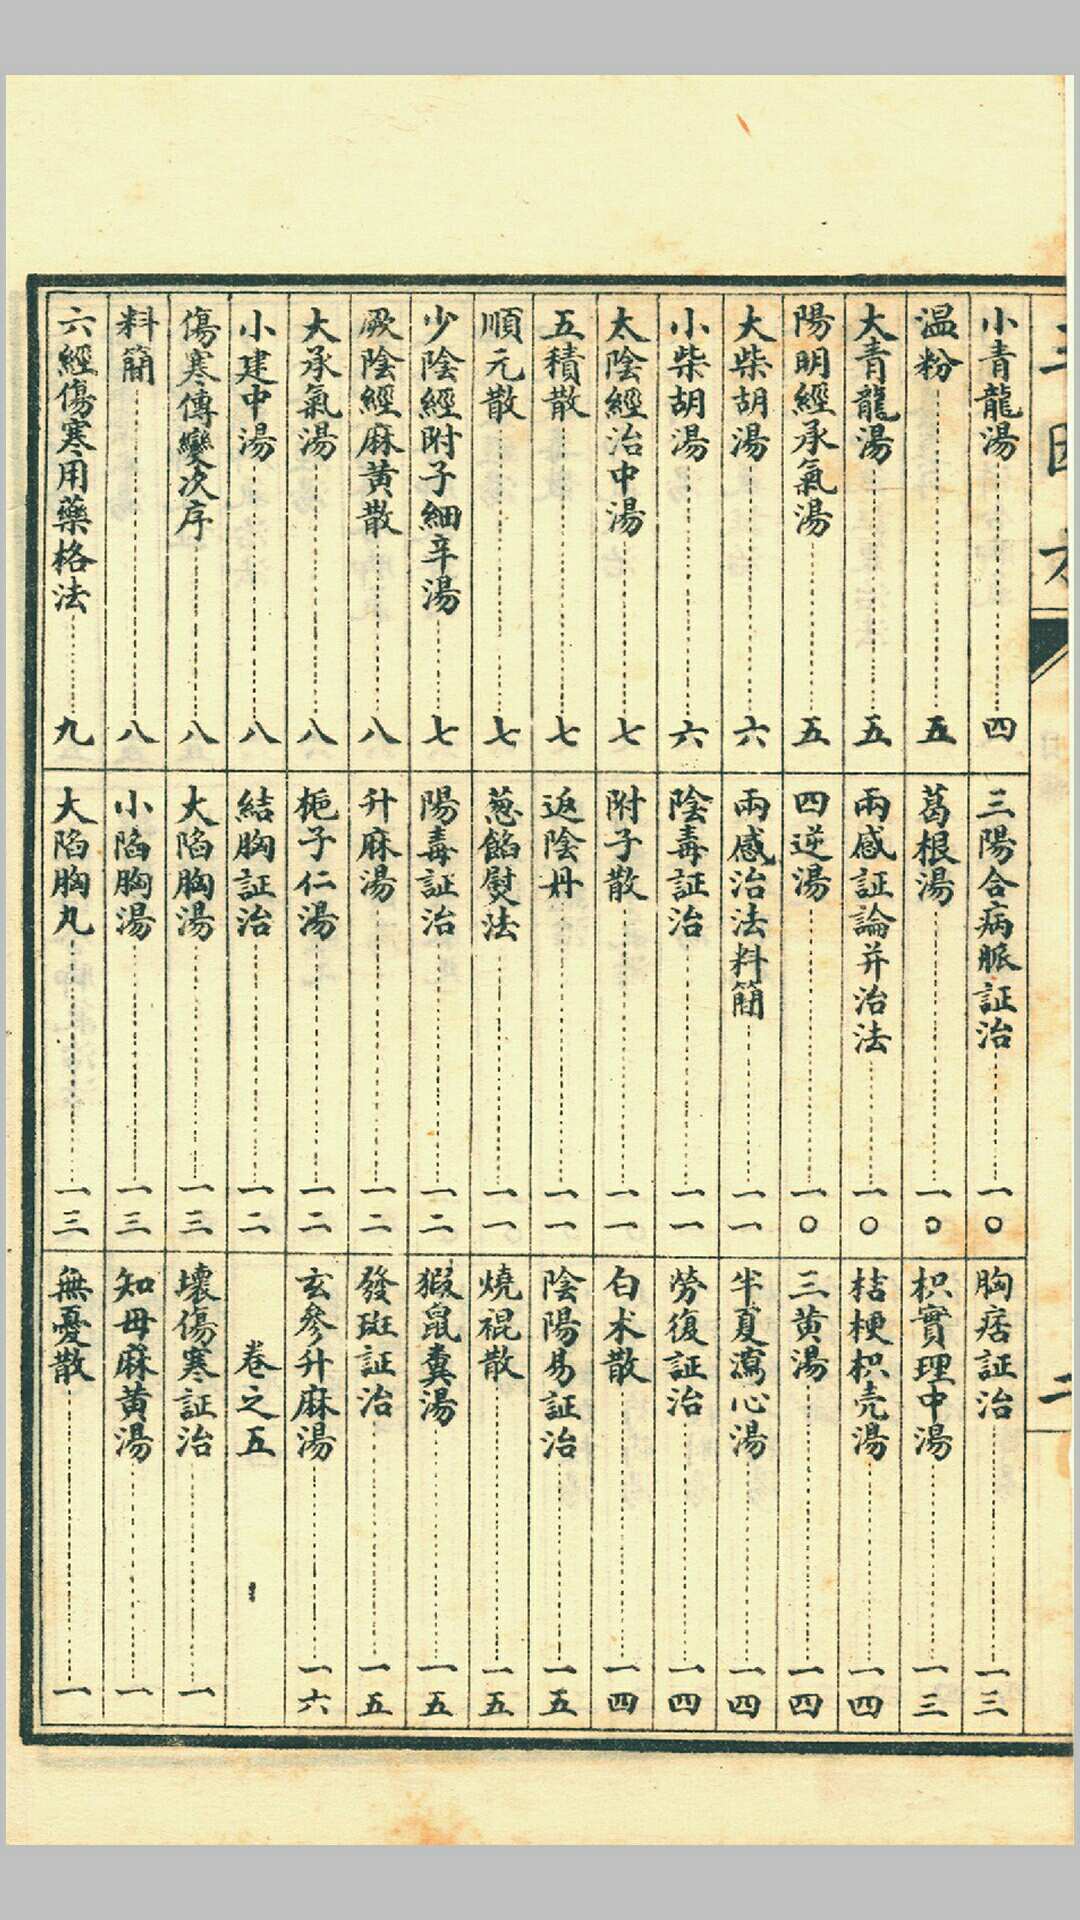 小青龍湯 四
温粉 五
大青龍湯 五
陽明經承氣湯 五
大柴胡湯 六
小柴胡湯 六
太陰經治中湯 七
五積散 七
順元散 七
少陰經附子細辛湯 七
厥陰經麻黃散 八
大承氣湯 八
小建中湯 八
傷寒傳變次序 八
料簡 八
六經傷寒用藥格法 九
三陽合病脈証治 一〇
葛根湯 一〇
兩感証論并治法 一〇
四逆湯 一〇
兩感治法料簡 一一
陰毒証治 一一
附子散 一一
返陰丹 一一
葱餡熨法 一一
陽毒証治 一二
升麻湯 一二
梔子仁湯 一二
結胸証治 一二
大陷胸湯 一三
小陷胸湯 一三
大陷胸丸 一三
胸痞証治 一三
枳實理中湯 一三
桔梗枳壳湯 一四
三黄湯 一四
半夏瀉心湯 一四
勞復証治 一四
白术散 一四
陰陽易証治 一五
燒裩散 一五
猳鼠糞湯 一五
發斑証治 一五
玄參升麻湯 一六
卷之五
壞傷寒証治 一
知母麻黄湯 一
無憂散 一